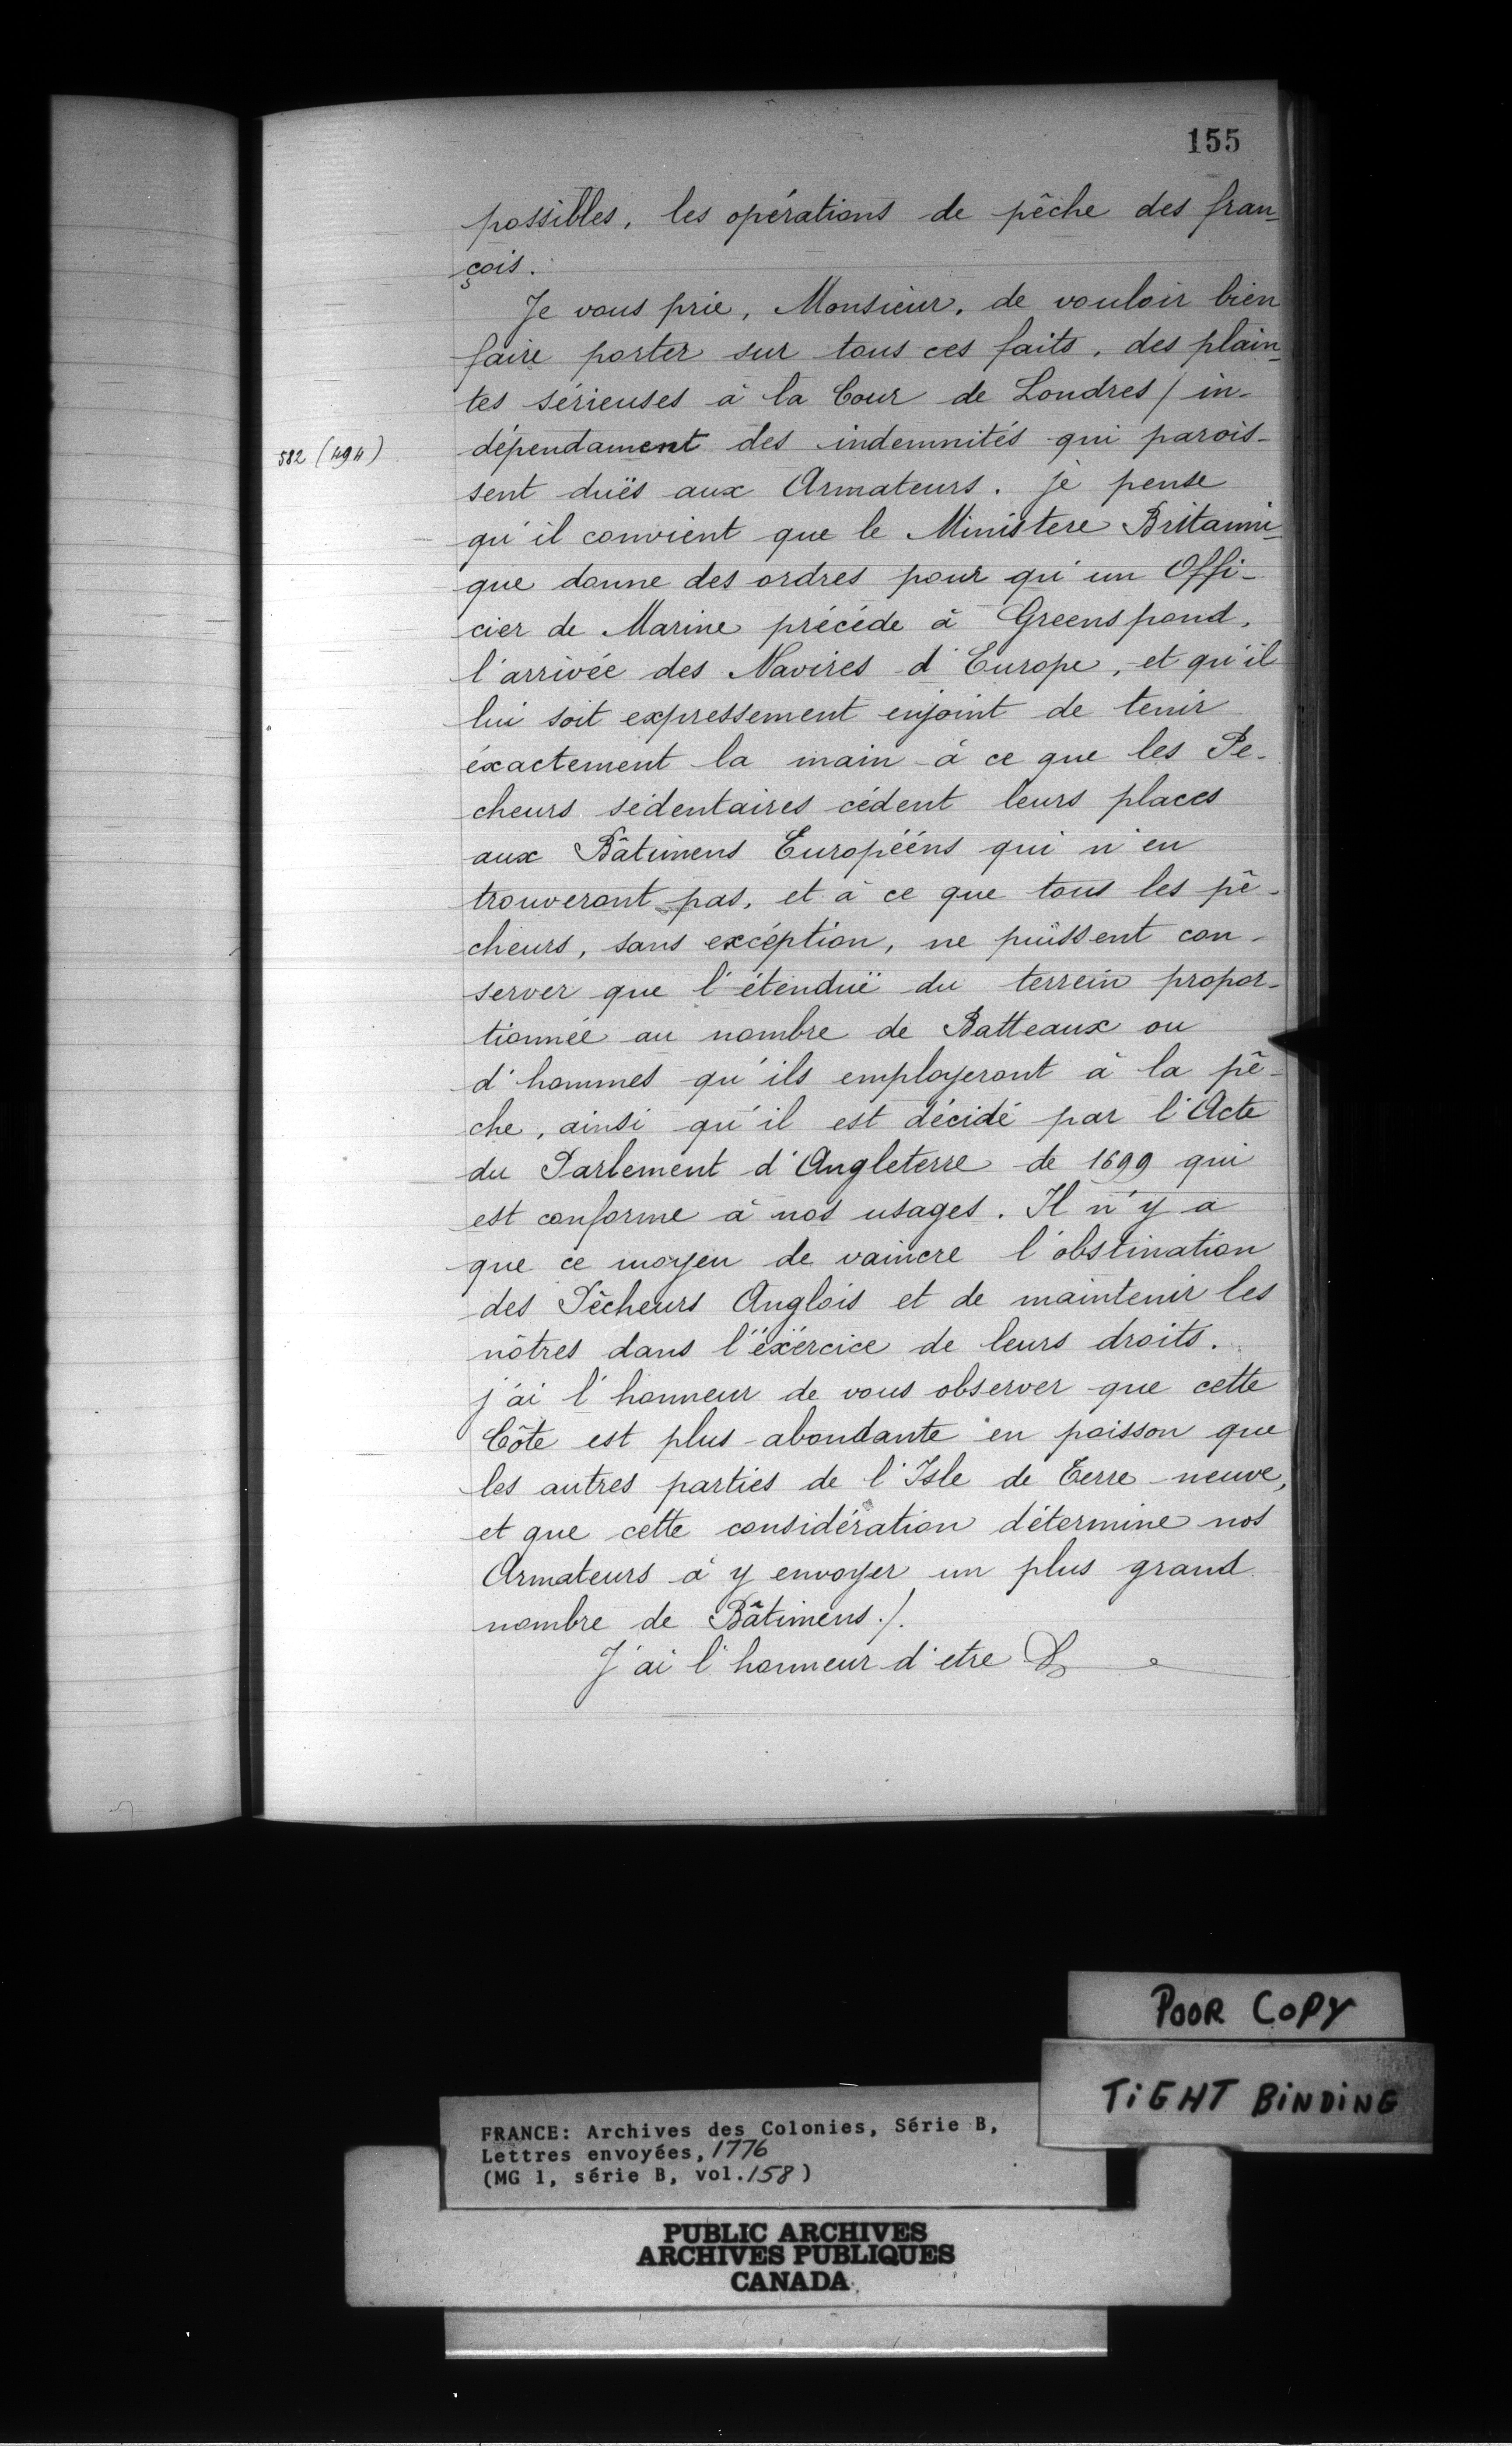 155
possibles, les opérations de pêche des fran-
çois.
Je vous prie, Monsieur, de vouloir bien
faire porter sur tous ces faits, des plain-
tes sérieuses à la Cour de Londres / in-
582 (494)
dépendament des indemnités qui parois-
sent duës aux Armateurs. je pense
qu'il convient que le Ministere Britanni-
que donne des ordres pour qu'un Offi-
cier de Marine précéde à Greenspond,
l'arrivée des Navires d'Europe, et qu'il
lui soit expressement enjoint de tenir
éxactement la main à ce que les Pe-
cheurs sédentaires cédent leurs places
aux Bâtimens Européens qui n'en
trouveront pas, et à ce que tous les pê-
cheurs, sans excéption, ne puissent con-
server que l'étenduë du terrein propor-
tionnée au nombre de Batteaux ou
d'hommes qu'ils employeront à la pê-
che, ainsi qu'il est décidé par l'Acte
du Parlement d'Angleterre de 1699 qui
est conforme à nos usages. Il n'y a
que ce moyen de vaincre l'obstination
des Pêcheurs Anglois et de maintenir les
nôtres dans l'éxércice de leurs droits.
j'ai l'honneur de vous observer que cette
Côte est plus abondante en poisson que
les autres parties de l'Isle de Terre-neuve,
et que cette considération détermine nos
Armateurs à y envoyer un plus grand
nombre de Bâtimens./.
J'ai l'honneur d'etre &
POOR COPY
TIGHT BINDING
FRANCE: Archives des Colonies, Série B,
Lettres envoyées, 1776
(MG 1, série B, vol. 158)
PUBLIC ARCHIVES
ARCHIVES PUBLIQUES
CANADA